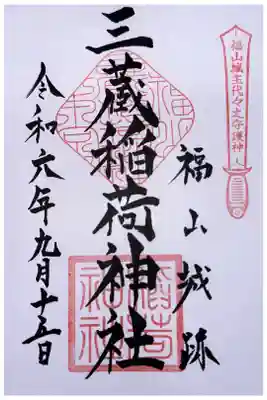 福山城主代々之守護神
福山城跡
三蔵稲荷神社
令和六年九月十五日